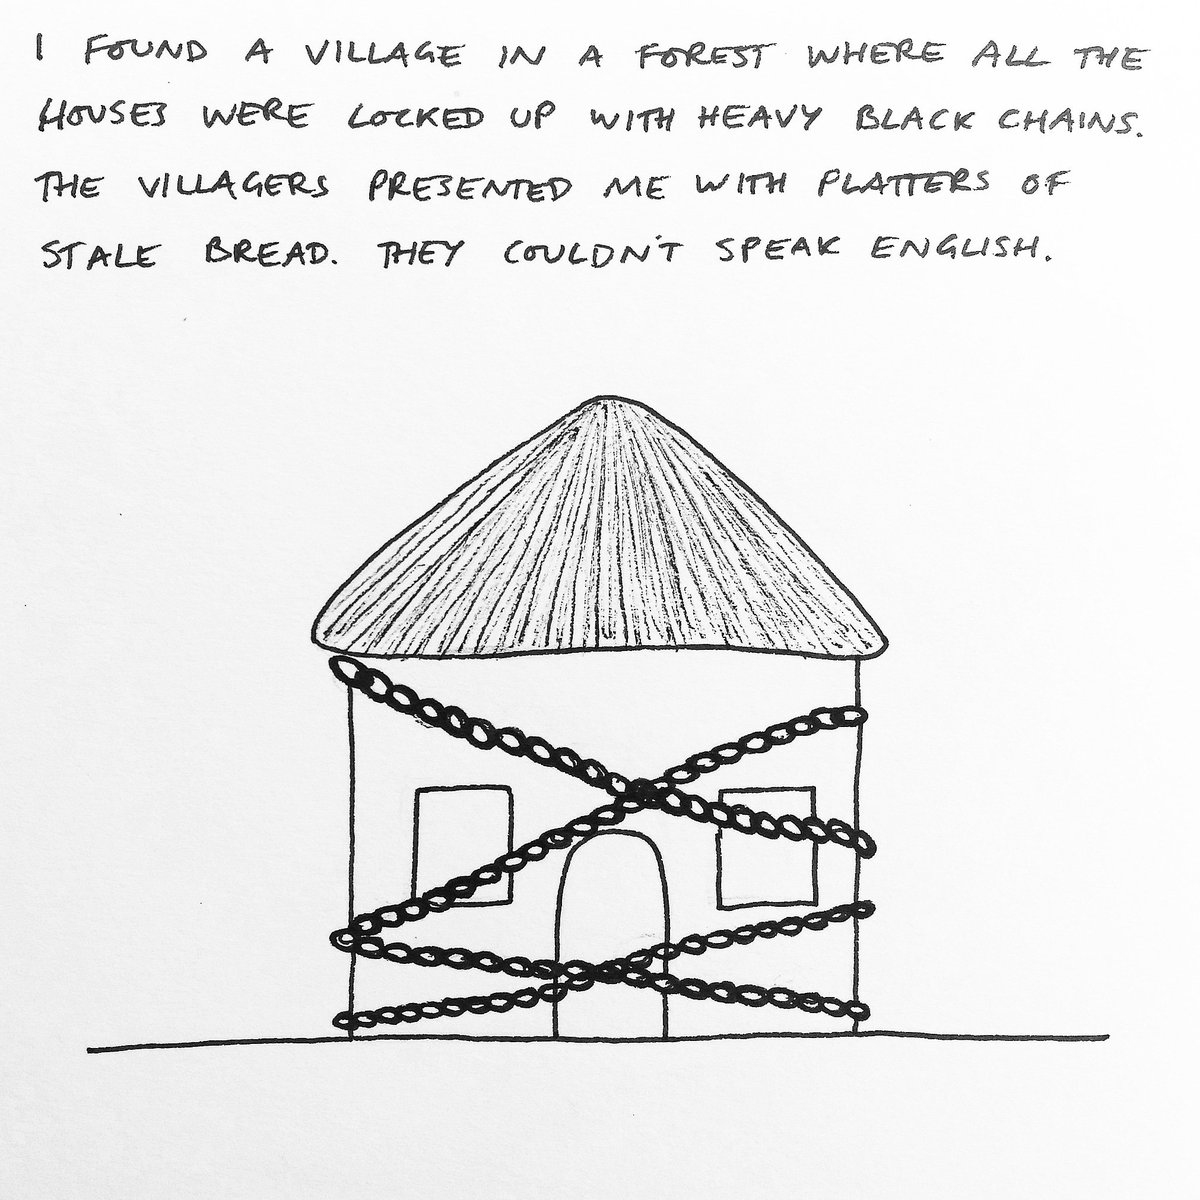 I FOUND A VILLAGE IN A FOREST WHERE ALL THE
HOUSES WERE LOCKED UP WITH HEAVY BLACK CHAINS.
THE VILLAGERS PRESENTED ME WITH PLATTERS OF
STALE BREAD. THEY COULDN'T SPEAK ENGLISH.